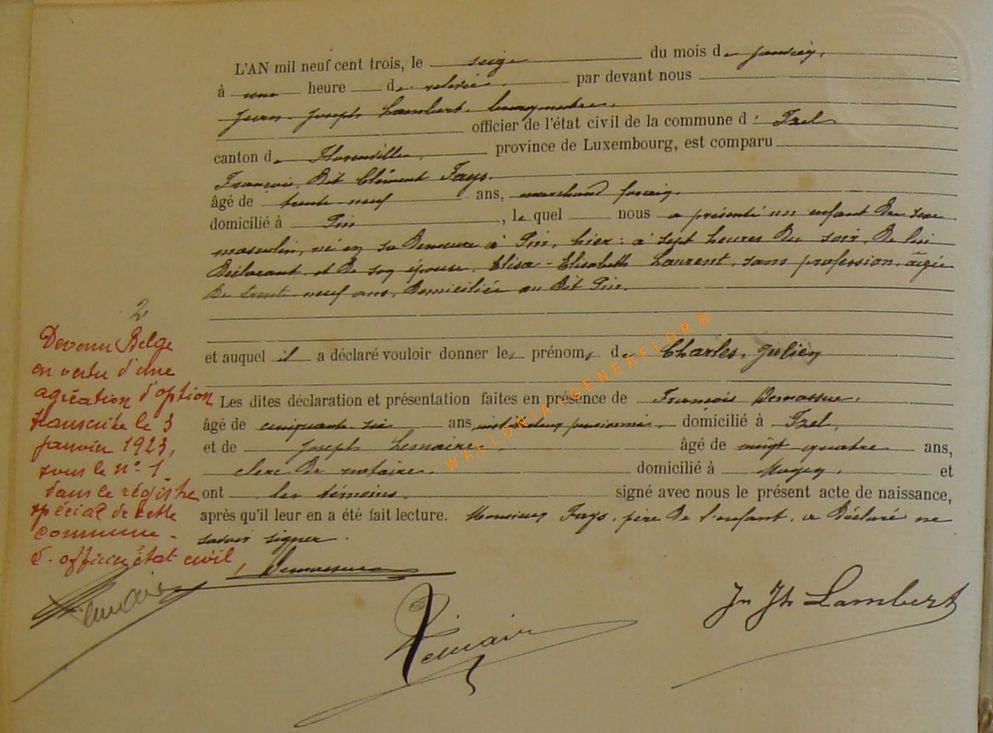 L'AN mil neuf cent trois, le seize du mois de janvier,
à une heure de relevée, par devant nous
Jean-Joseph Lambert, bourgmestre,
officier de l'état civil de la commune d' Izel
canton de Florenville, province de Luxembourg, est comparu
François, dit Clément Fays,
âgé de trente neuf ans, marchand forain,
domicilié à Pin, le quel nous a présenté un enfant du sexe
masculin, né en sa demeure à Pin, hier, à sept heures du soir, de lui
déclarant et de son épouse, Elisa-Elisabeth Laurent, sans profession, âgée
de trente neuf ans, domiciliée au dit Pin.
et auquel il a déclaré vouloir donner les prénoms de Charles, Julien
Les dites déclaration et présentation faites en présence de François Demasure,
âgé de cinquante six ans, pensionné, domicilié à Izel,
et de Joseph Lemaire, âgé de vingt quatre ans,
clerc de notaire, domicilié à Moyen, et
ont les témoins, signé avec nous le présent acte de naissance,
après qu'il leur en a été fait lecture. Monsieur Fays, père de l'enfant, a déclaré ne
savoir signer.
2
Devenu Belge
en vertu d'une
agréation d'option
transcrite le 3
janvier 1923,
sous le n° 1
dans le régistre
spécial de cette
commune -
L. officier état civil,
Lemaire
Jn Jh Lambert
WALLONIA GENEAFLOR ®